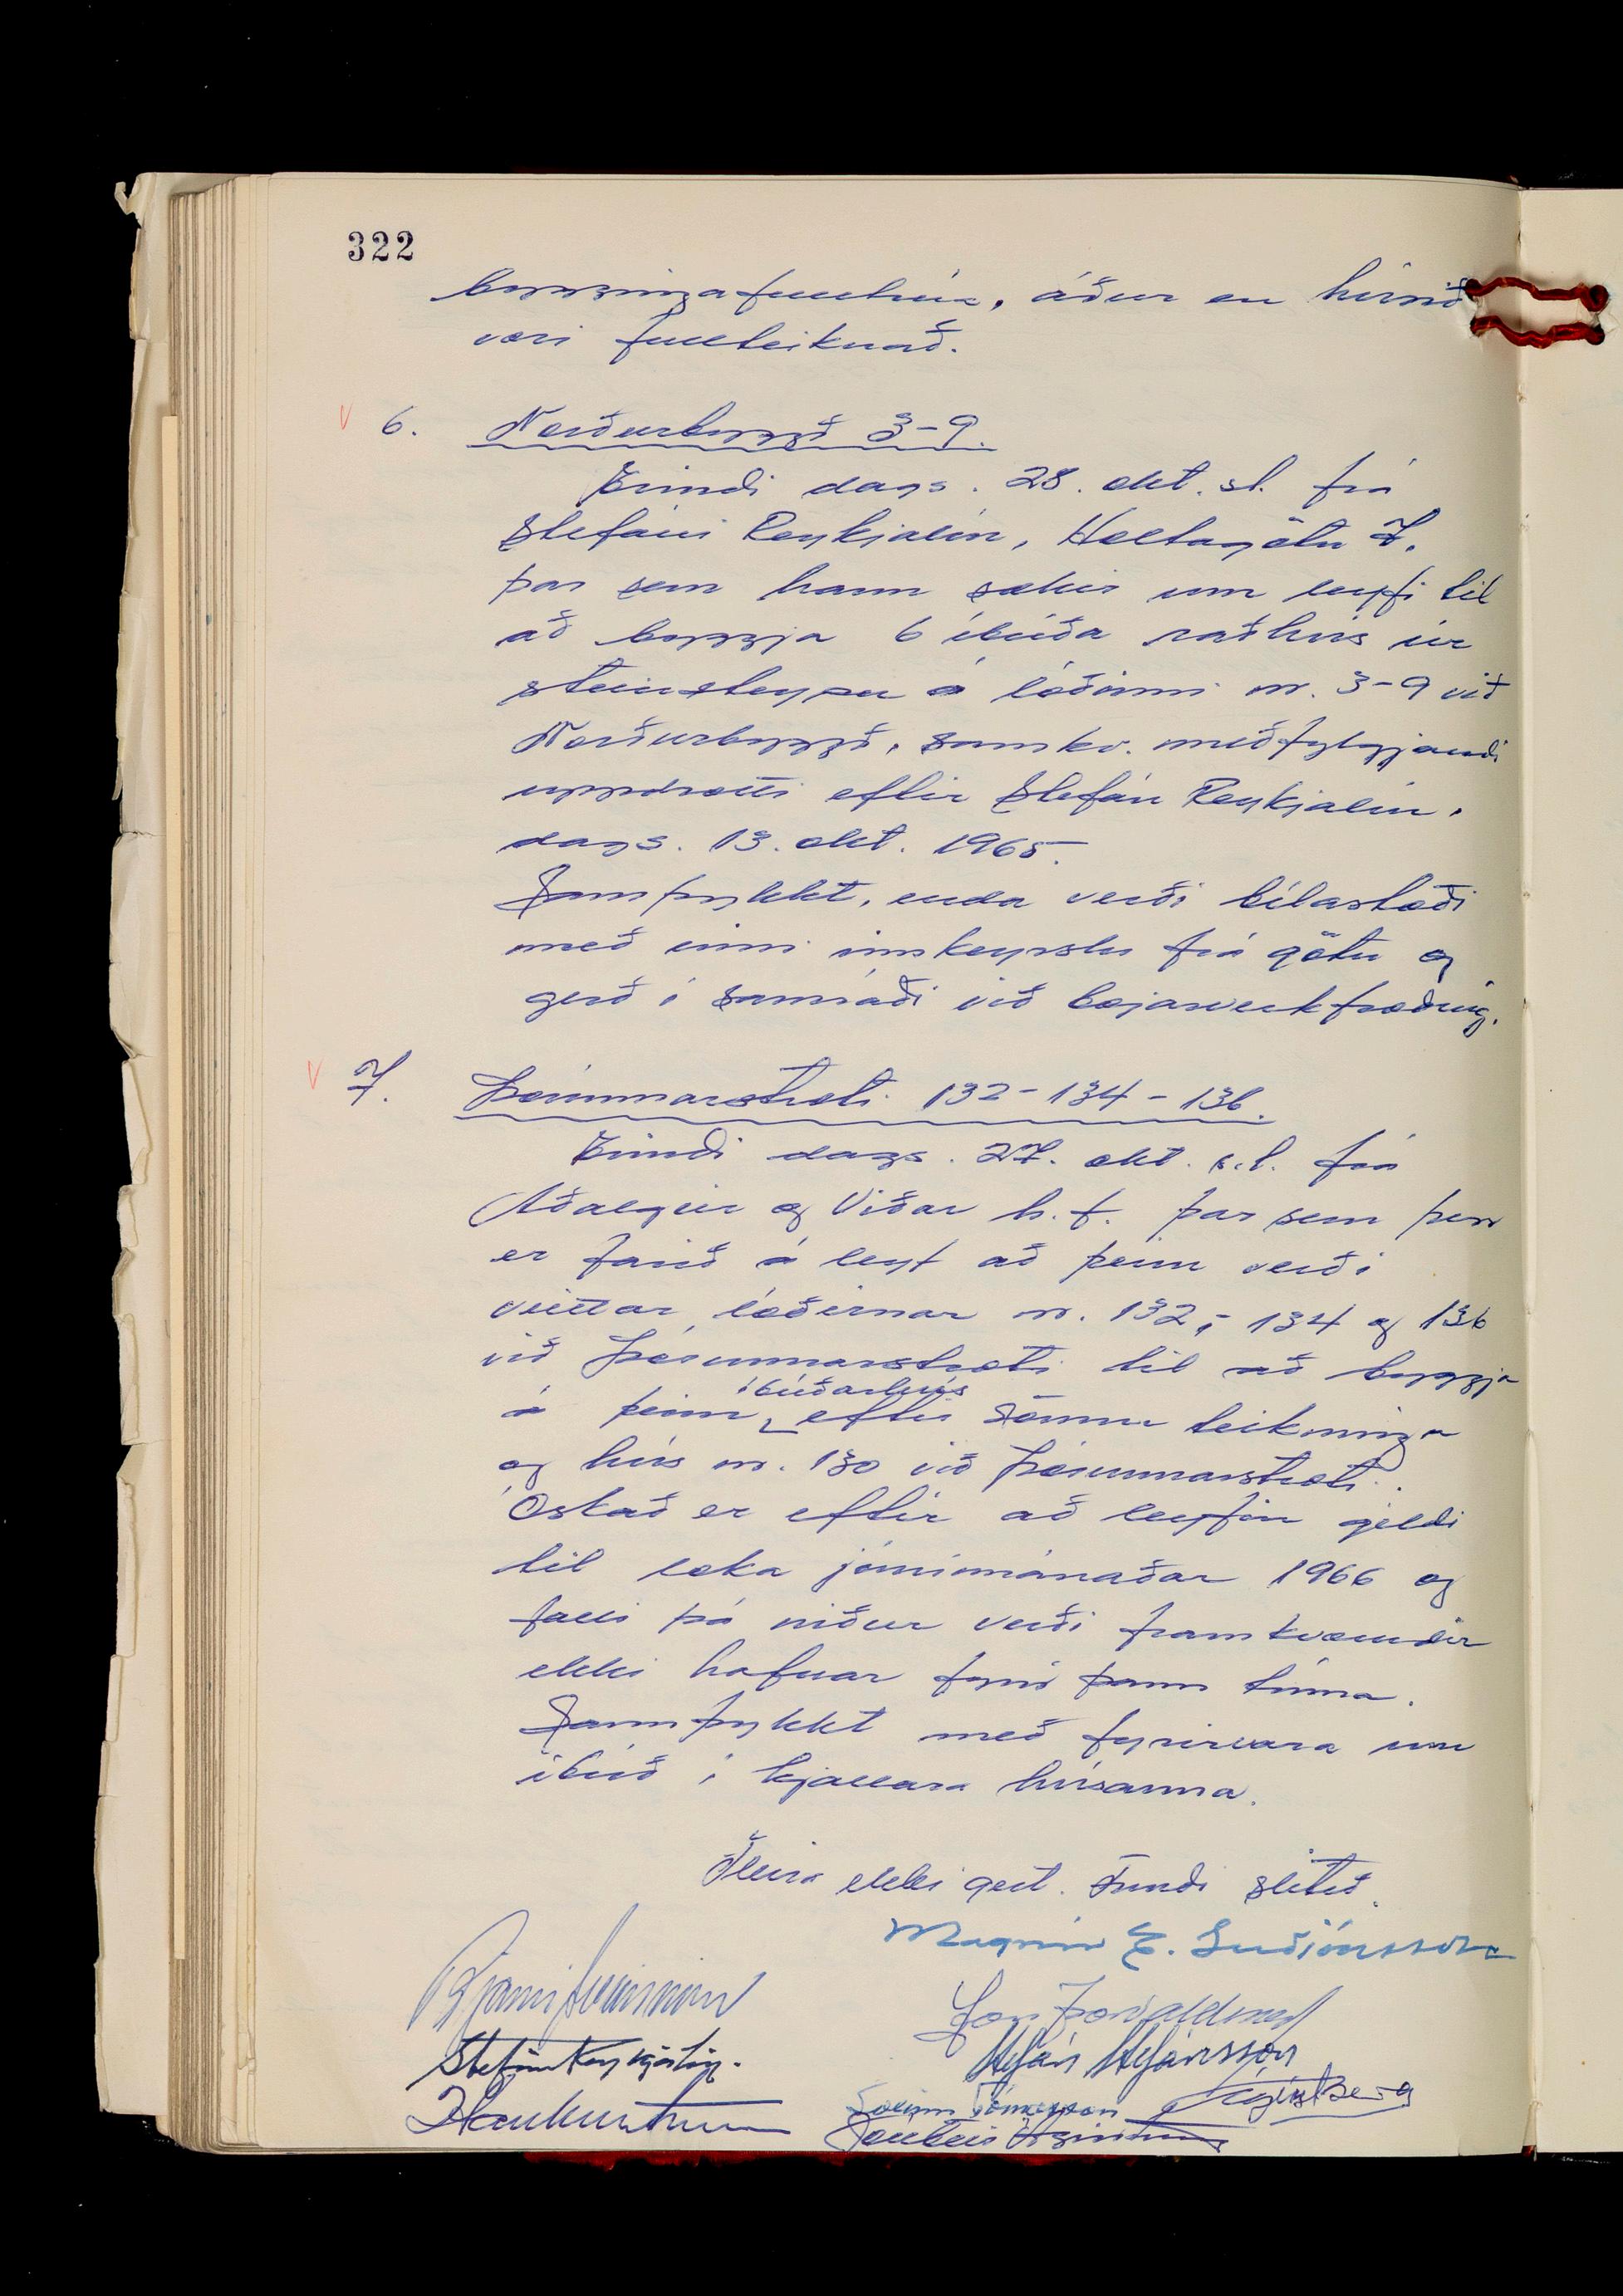 322
byggingafulltrúa, áður en húsið
væri fullteiknað.
6. Norðurbyggð 3-9.
Erindi dags. 28. okt. sl. frá
Stefáni Reykjalín, Holtagötu 7,
þar sem hann sækir um leyfi til
að byggja 6 íbúða raðhús úr
steinsteypu á lóðinni nr. 3-9 við
Norðurbyggð, samkv. meðfylgjandi
uppdrætti eftir Stefán Reykjalín,
dags. 13. okt. 1965.
Samþykkt, enda verði bílastæði
með einni innkeyrslu frá götu og
gerð í samráði við bæjarverkfræðing.
7. Þórunnarstræti 132-134-136.
Erindi dags. 27. okt. s.l. frá
Aðalgeir og Viðar h.f. þar sem þess
er farið á leyt að þeim verði
veittar lóðirnar nr. 132, - 134 og 136
við Þórunnarstræti til að byggja
á þeim íbúðarhús eftir sömu teikningu
og hús nr. 130 við Þórunnarstræti.
Óskað er eftir að leyfin gildi
til loka júnímánaðar 1966 og
falli þá niður verði framkvæmdir
ekki hafnar fyrir þann tíma.
Samþykkt með fyrirvara um
íbúð í kjallara húsanna.
Fleira ekki gert. Fundi slitið.
Magnús E. Guðjónsson
Bjarni Sveinsson
Jón Þorvaldsson
Stefán Reykjalín.
Stefán Stefánsson
Haukur
Sveinn Tómasson